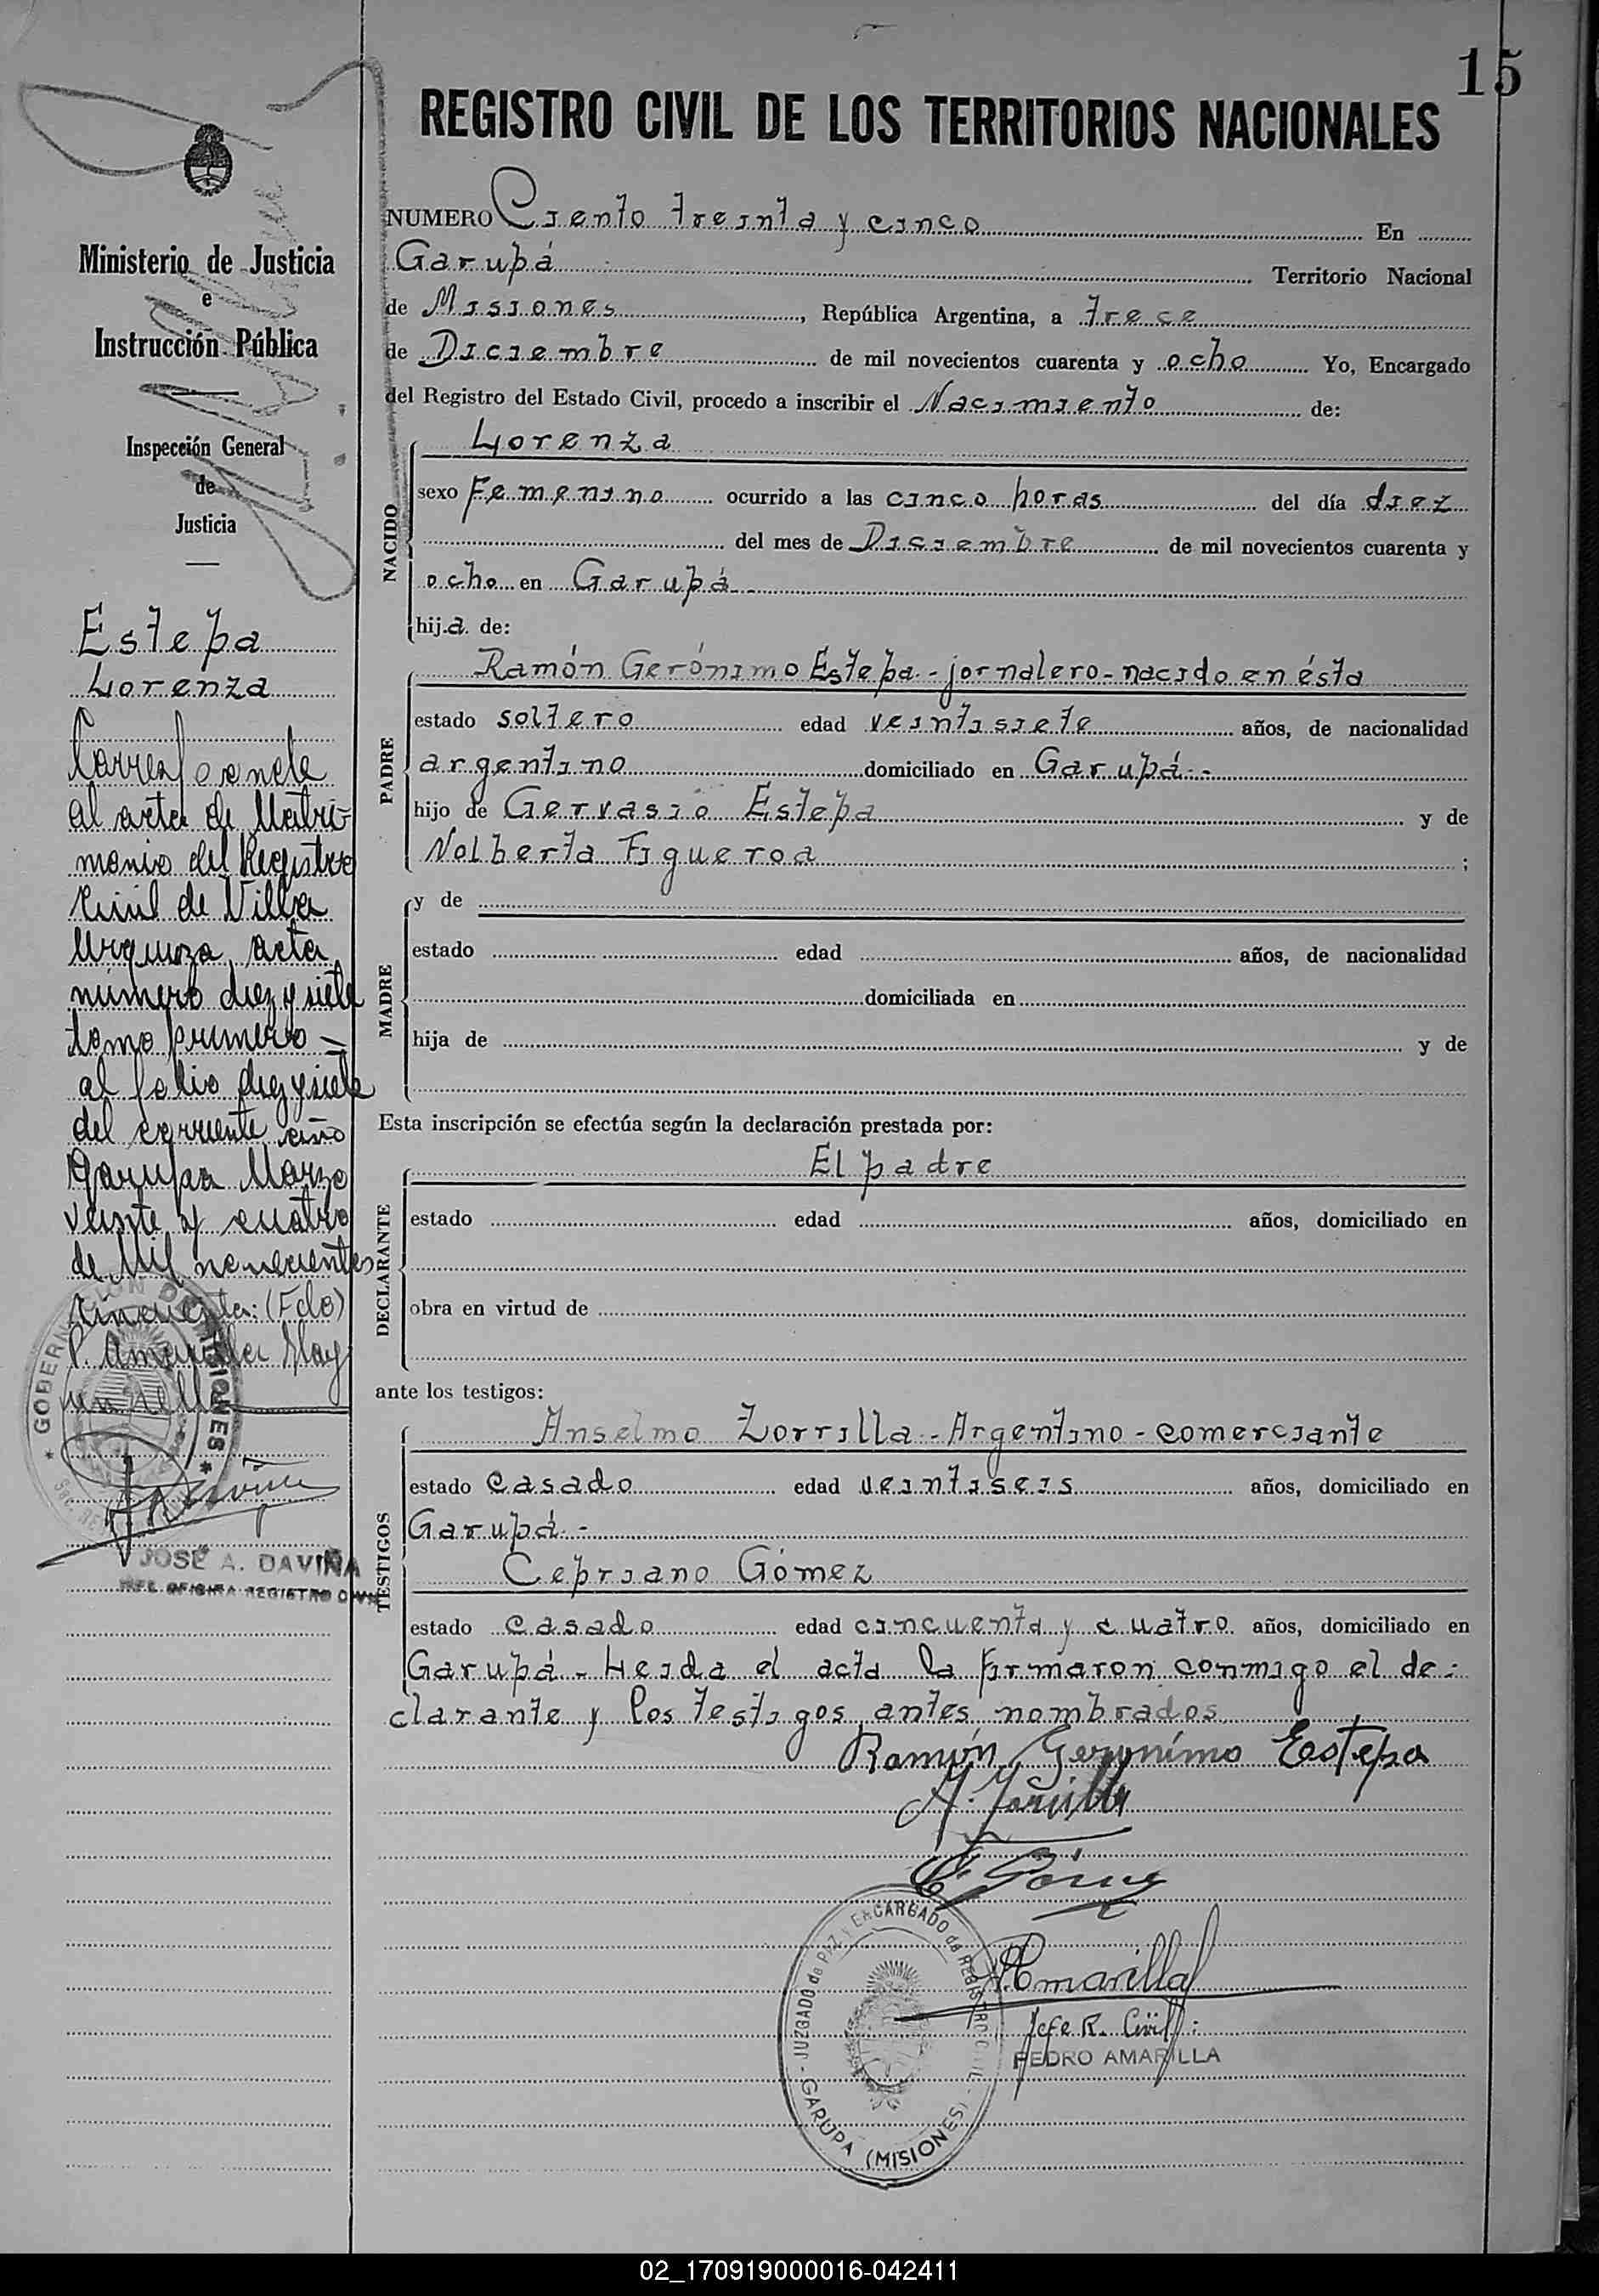 15
REGISTRO CIVIL DE LOS TERRITORIOS NACIONALES
Ministerio de Justicia
e
Instrucción Pública
Inspección General
de
Justicia
Estepa
Lorenza
al acta de Matri-
monio del Registro
Civil de Villa
Urquiza, acta
número diez y siete
tomo primero -
al folio diez y siete
del corriente año
Garupa Marzo
veinte y cuatro
de Mil novecientos
cincuenta: (Fdo)
P. Amarilla Hay
un sello
GOBERNACION DE MISIONES
JOSÉ A. DAVIÑA
JEFE OFICINA REGISTRO CIVIL
NUMERO Ciento treinta y cinco En
Garupá Territorio Nacional
de Misiones, República Argentina, a trece
de Diciembre de mil novecientos cuarenta y ocho Yo, Encargado
del Registro del Estado Civil, procedo a inscribir el Nacimiento de:
NACIDO
Lorenza
sexo Femenino ocurrido a las cinco horas del día diez
del mes de Diciembre de mil novecientos cuarenta y
ocho en Garupá.-
hija de:
PADRE
Ramón Gerónimo Estepa - jornalero - nacido en ésta
estado soltero edad veintisiete años, de nacionalidad
argentino domiciliado en Garupá.-
hijo de Gervasio Estepa y de
Nolberta Figueroa ;
MADRE
y de
estado edad años, de nacionalidad
domiciliada en
hija de y de
Esta inscripción se efectúa según la declaración prestada por:
DECLARANTE
El padre
estado edad años, domiciliado en
obra en virtud de
ante los testigos:
TESTIGOS
Anselmo Zorrilla - Argentino - comerciante
estado Casado edad veintiseis años, domiciliado en
Garupá.-
Cepriano Gómez
estado casado edad cincuenta y cuatro años, domiciliado en
Garupá - Leida el acta la firmaron conmigo el de-
clarante y los testigos antes nombrados
Ramón Geronimo Estepa
A. Zorrilla
C Gómez
P Amarilla
Jefe R. Civil
PEDRO AMARILLA
JUZGADO de PAZ y ENCARGADO de REGISTRO CIVIL
GARUPA (MISIONES)
02_170919000016-042411